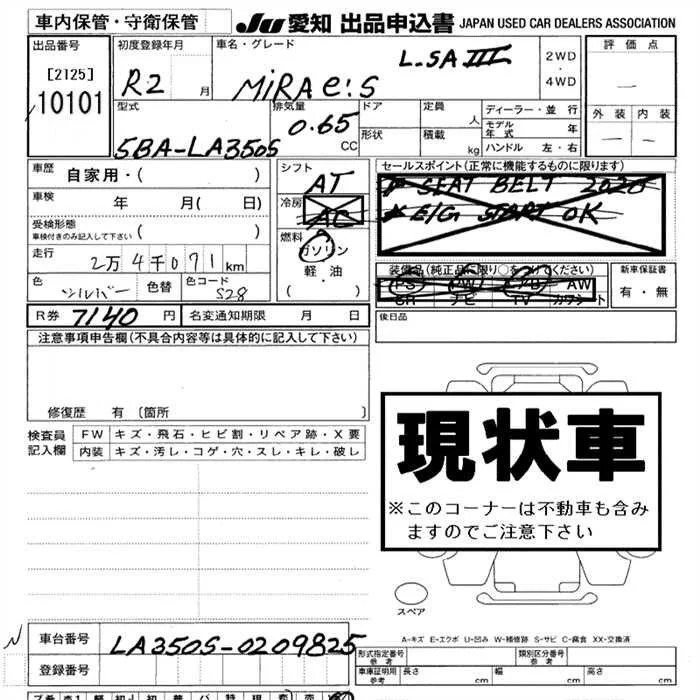 車内保管・守衛保管
JU 愛知 出品申込書 JAPAN USED CAR DEALERS ASSOCIATION
出品番号
[2125]
10101
初度登録年月
R2 月
車名・グレード
MiRA e:S
L.SAⅢ
2WD
・
4WD
評価点
―
外装 内装
― ―
型式
5BA-LA350S
排気量
0.65
CC
ドア
形状
定員 人
積載 kg
ディーラー・並行
モデル年式 年
ハンドル 左・右
車歴 自家用・( )
車検 年 月( 日)
受検形態
車検付きのみ記入して下さい ( )
走行 2万4千071km
色 シルバー
色替
色コード S28
シフト AT
冷房 AC
燃料
ガソリン
軽・油
( ・ )
セールスポイント(正常に機能するものに限ります)
SEAT BELT 2020
E/G START OK
装備品(純正品に限り○をつけてください)
PS PW AB AW
SR ナビ TV カワシート
新車保証書
有・無
後日品
R券 7140 円
名変通知期限 月 日
注意事項申告欄(不具合内容等は具体的に記入して下さい)
修復歴 有〔箇所 〕
検査員記入欄
FW キズ・飛石・ヒビ割・リペア跡・X要
内装 キズ・汚レ・コゲ・穴・スレ・キレ・破レ
現状車
※このコーナーは不動車も含み
ますのでご注意下さい
スペア
A-キズ E-エクボ U-凹み W-補修跡 S-サビ C-腐食 XX-交換済
車台番号 LA350S-0209825
登録番号
形式指定番号
参考
類別区分番号
参考
車庫証明用
参考
長さ cm
幅 cm
高さ cm